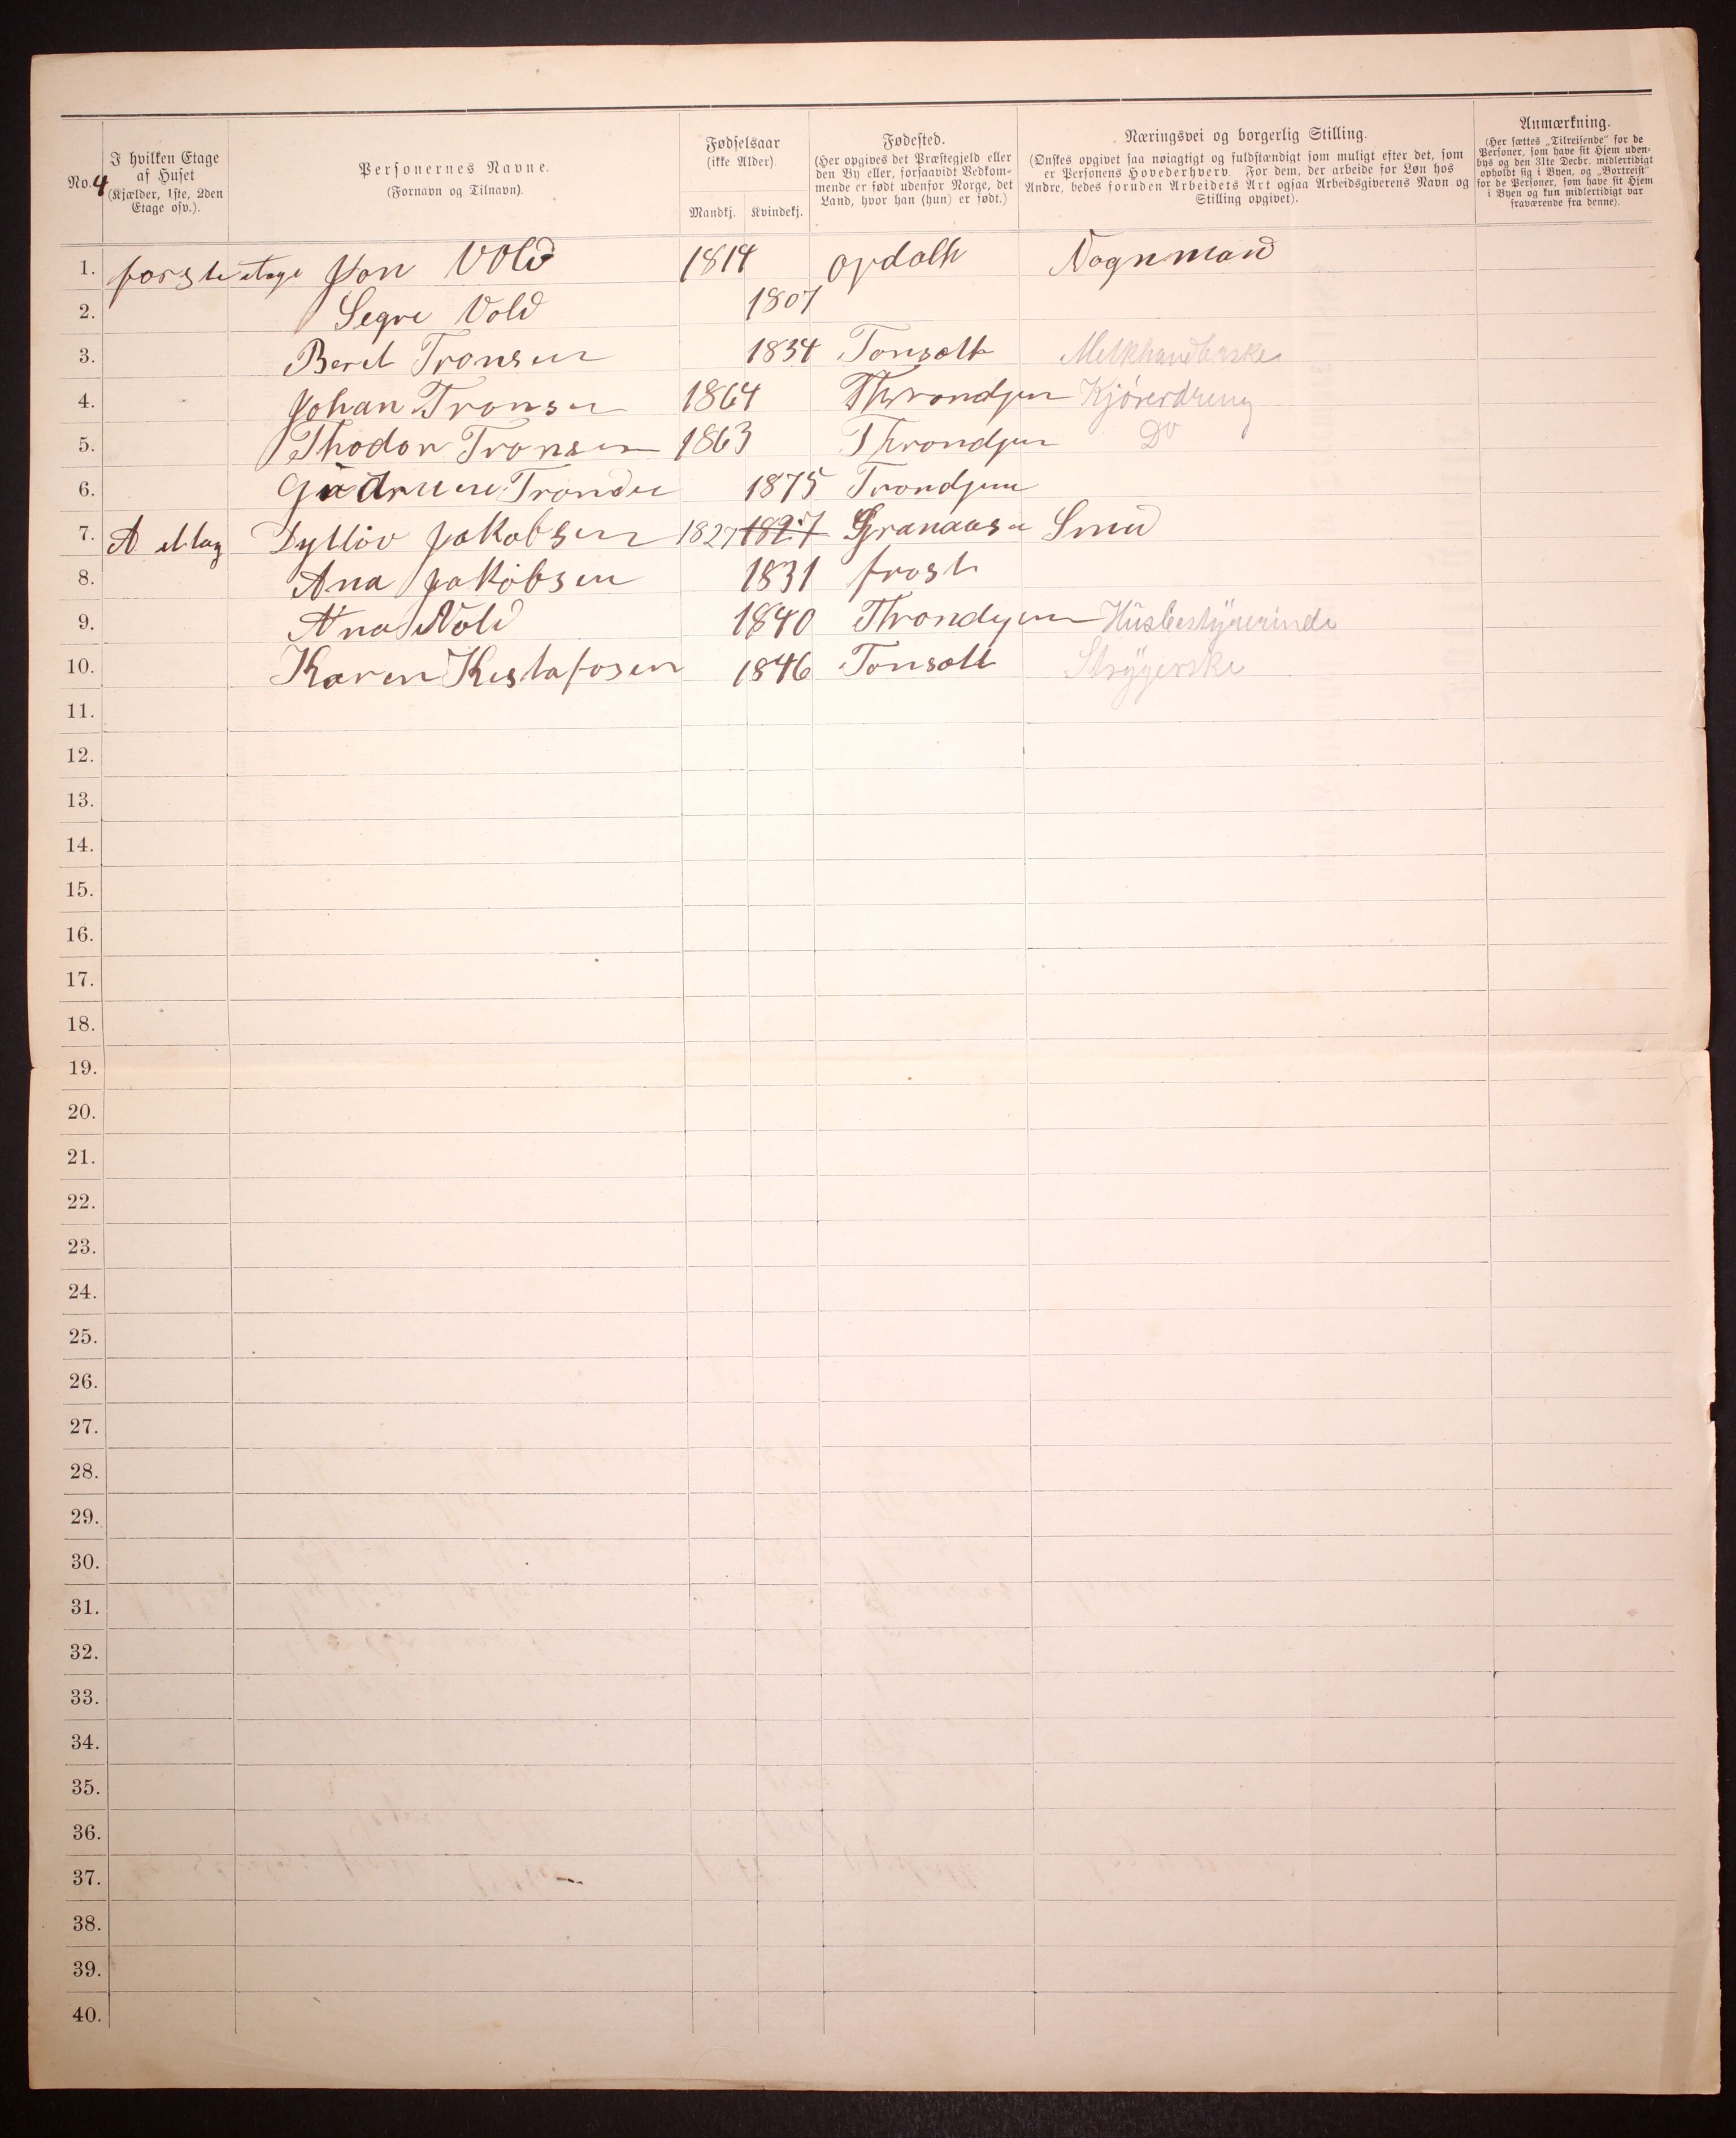 No. 4
I hvilken Etage af Huset (Kjælder, 1ste, 2den Etage osv.).
Personernes Navne. (Fornavn og Tilnavn).
Fødselsaar (ikke Alder).
Mandkj. Kvindekj.
Fødested. (Her opgives det Præstegjeld eller den By eller, forsaavidt Vedkommende er født udenfor Norge, det Land, hvor han (hun) er født.)
Næringsvei og borgerlig Stilling. (Ønskes opgivet saa nøiagtigt og fuldstændigt som muligt efter det, som er Personens Hovederhverv. For dem, der arbeide for Løn hos Andre, bedes foruden Arbeidets Art ogsaa Arbeidsgiverens Navn og Stilling opgivet).
Anmærkning. (Her sættes „Tilreisende“ for de Personer, som have sit Hjem udenbys og den 31te Decbr. midlertidigt opholdt sig i Byen, og „Bortreist“ for de Personer, som have sit Hjem i Byen og kun midlertidigt var fraværende fra denne).
1. forste etage Jon Vold 1814 opdalh Vognmand
2. Segre Vold 1807
3. Beret Tronsen 1834 Tonsalt Melkhandlerske
4. Johan Tronsen 1864 Throndjem Kjørerdreng
5. Thodor Tronsen 1863 Throndjem Do
6. Gudrune Tronsen 1875 Trondjem
7. A ettag Dyllov Jakobsen 1827 1827 Granaasn Smed
8. Ana Jakobsen 1831 frost
9. Ana Vold 1840 Throndjem Husbestyrerinde
10. Karen Kestafosen 1846 Tonsalt Strygerske
11.
12.
13.
14.
15.
16.
17.
18.
19.
20.
21.
22.
23.
24.
25.
26.
27.
28.
29.
30.
31.
32.
33.
34.
35.
36.
37.
38.
39.
40.